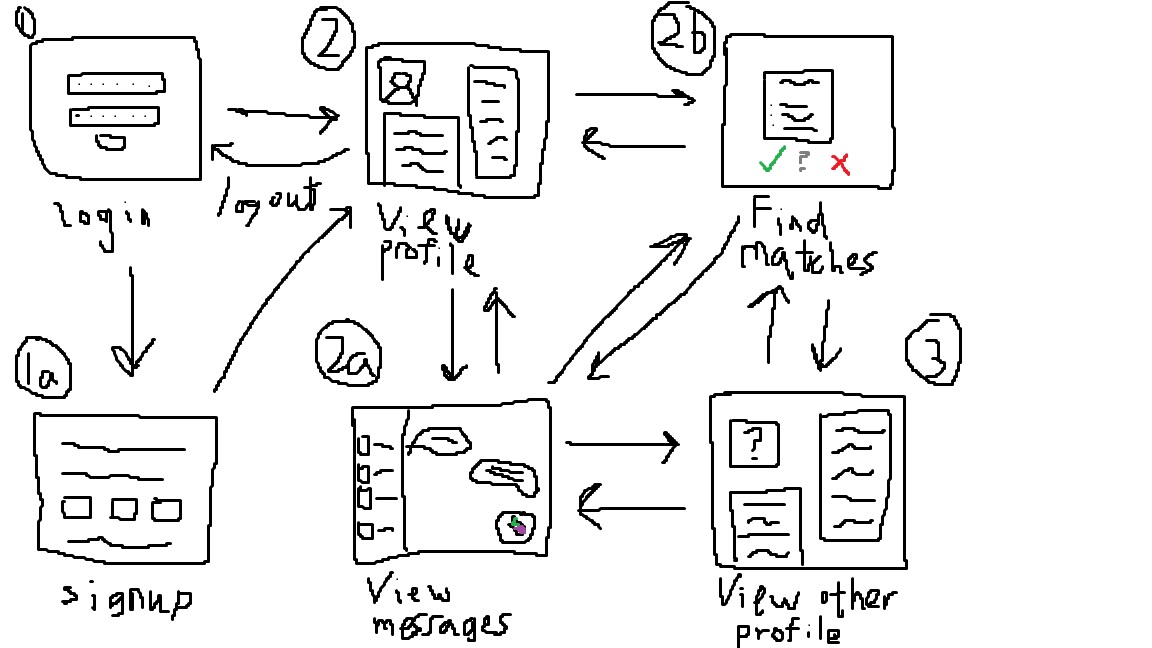 1
2
2b
?
login
logout
View
profile
Find
matches
1a
2a
3
?
signup
View
messages
View other
profile